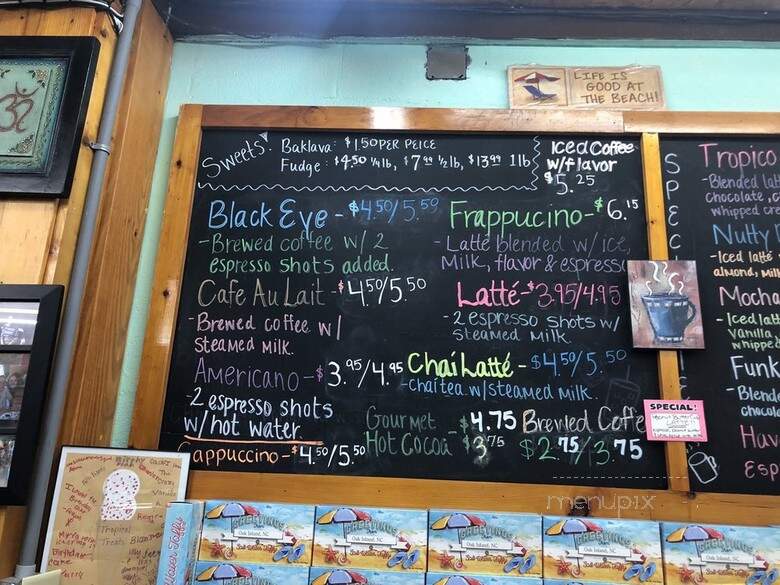 LIFE IS
GOOD AT
THE BEACH!
Sweets! Baklava: $1.50 PER PEICE
Fudge: $4.50 1/4 lb, $7.99 1/2 lb, $13.99 1 lb
Iced Coffee
w/flavor
$5.25
Black Eye - $4.50/5.50
-Brewed coffee w/ 2
espresso shots added.
Cafe Au Lait - $4.50/5.50
-Brewed coffee w/
steamed milk.
Americano - $3.95/4.95
-2 espresso shots
w/hot water
Cappuccino - $4.50/5.50
Frappucino - $6.15
-Latte blended w/ice,
Milk, flavor & espresso
Latté - $3.95/4.95
-2 espresso shots w/
steamed milk.
Chai Latté - $4.50/5.50
-chai tea w/steamed milk.
Gourmet
Hot Cocoa - $4.75
$3.75
Brewed Coffe
$2.75/3.75
SPEC
Tropica
-Blended latt
chocolate, c
whipped cre
Nutty
-Iced latte
almond, milk
Mocha
-Iced latt
vanilla
whipped
Funk
-Blende
chocol
Hav
Esp
SPECIAL:
Tropical
Treats
Vanilla
GREETINGS
Oak Island, NC
GREETINGS
Oak Island, NC
GREETINGS
Oak Island, NC
GREETINGS
Oak Island, NC
GREETINGS
Oak Island, NC
Taffy
menupix